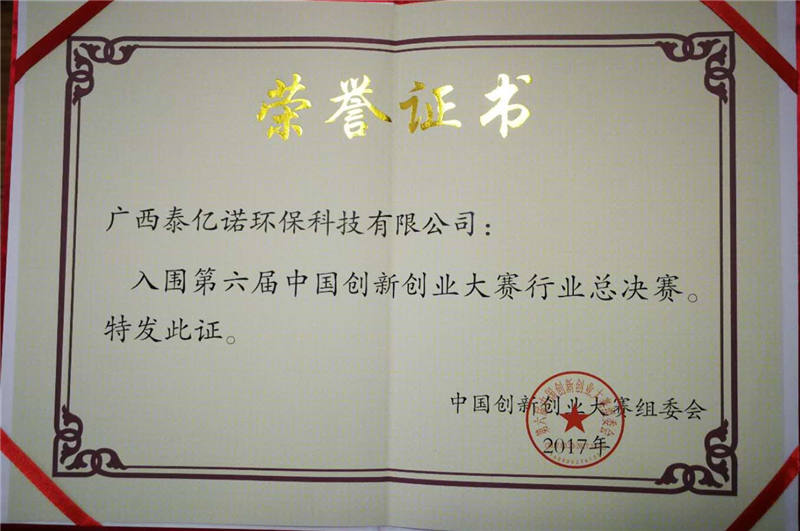 荣誉证书
广西泰亿诺环保科技有限公司：
入围第六届中国创新创业大赛行业总决赛。
特发此证。
中国创新创业大赛组委会
2017年